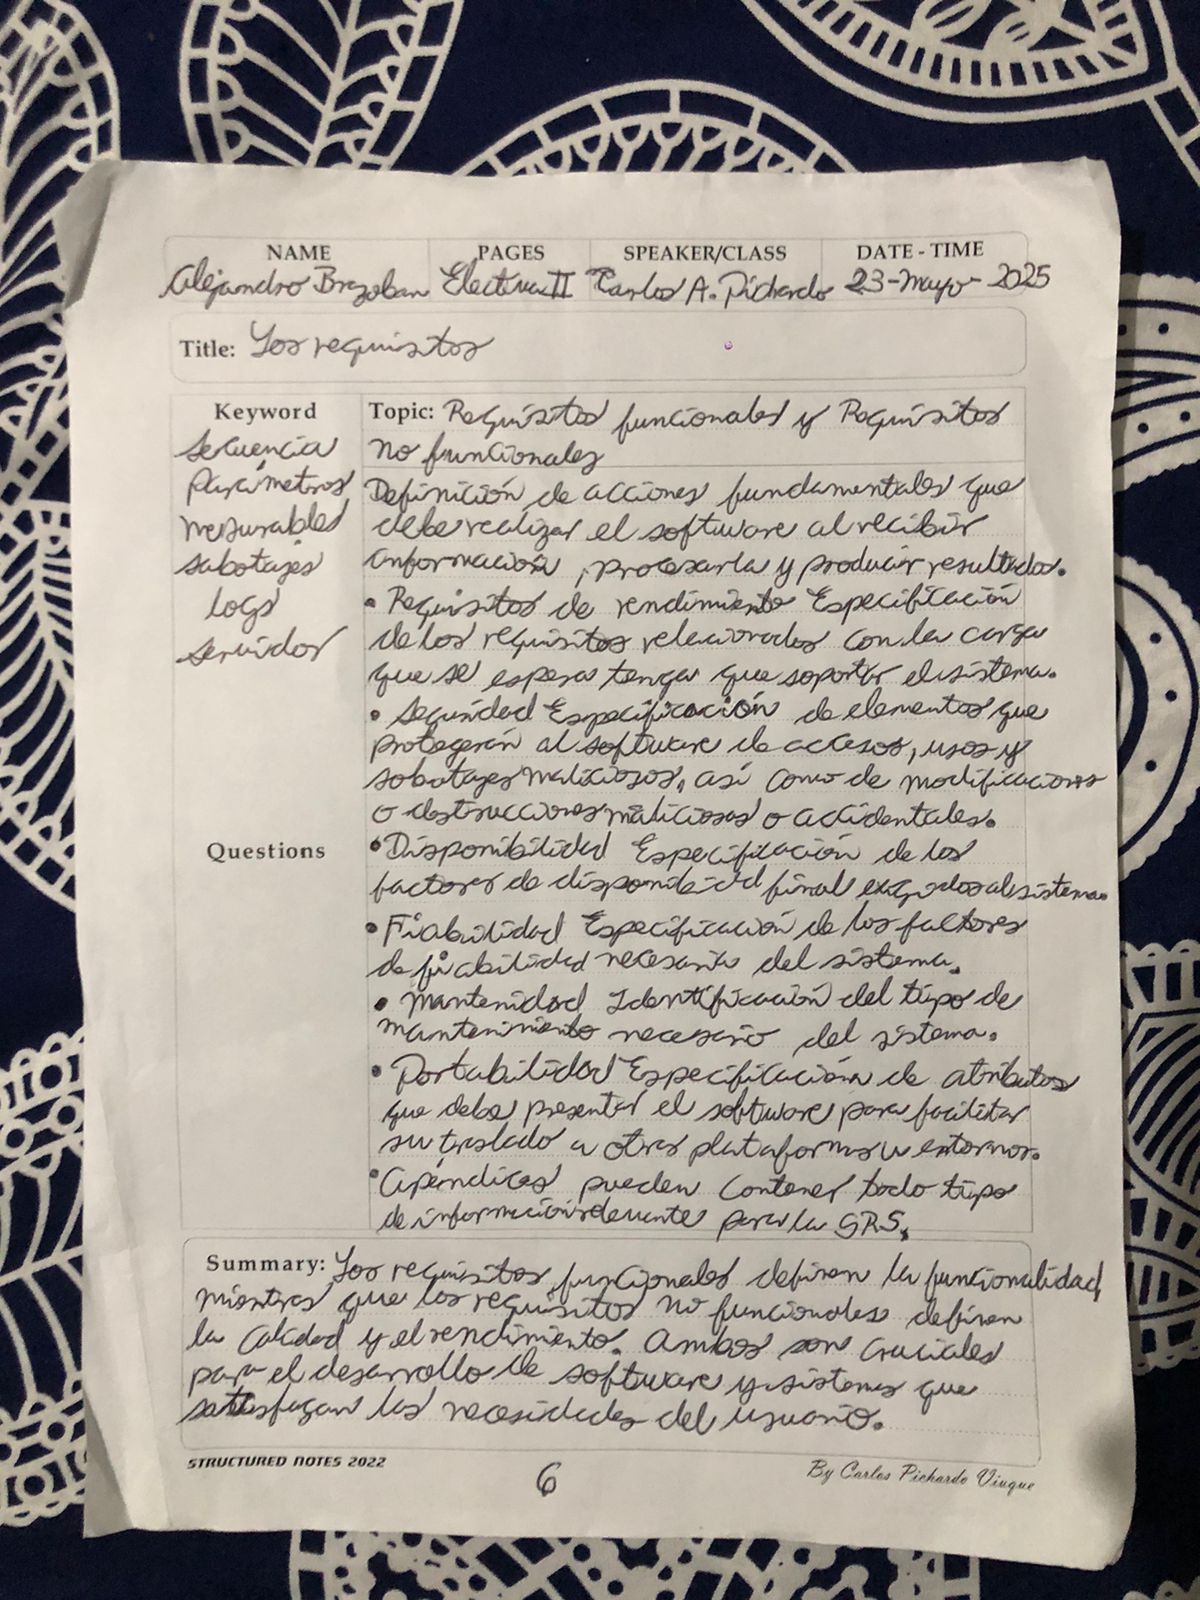 NAME PAGES SPEAKER/CLASS DATE - TIME
Alejandro Brazoban Electiva II Carlos A. Pichardo 23-Mayo-2025
Title: Los requisitos
Keyword
secuencia
Parámetros
mesurables
sabotajes
logs
servidor
Topic: Requisitos funcionales y Requisitos
no funcionales
Definición de acciones fundamentales que
debe realizar el software al recibir
información, procesarla y producir resultados.
• Requisitos de rendimiento Especificación
de los requisitos relacionados con la carga
que se espera tenga que soportar el sistema.
• Seguridad Especificación de elementos que
protegerán al software de accesos, usos y
sabotajes maliciosos, así como de modificaciones
o destrucciones maliciosas o accidentales.
Questions
• Disponibilidad Especificación de los
factores de disponibilidad final exigidos al sistema.
• Fiabilidad Especificación de los factores
de fiabilidad necesaria del sistema.
• Mantenidad Identificación del tipo de
mantenimiento necesario del sistema.
• Portabilidad Especificación de atributos
que debe presentar el software para facilitar
su traslado a otras plataformas u entornos.
• Apéndices pueden contener todo tipo
de información relevante para la SRS.
Summary: Los requisitos funcionales definen la funcionalidad,
mientras que los requisitos no funcionales definen
la calidad y el rendimiento. Ambos son cruciales
para el desarrollo de software y sistemas que
satisfagan las necesidades del usuario.
STRUCTURED NOTES 2022
6
By Carlos Pichardo Viuque